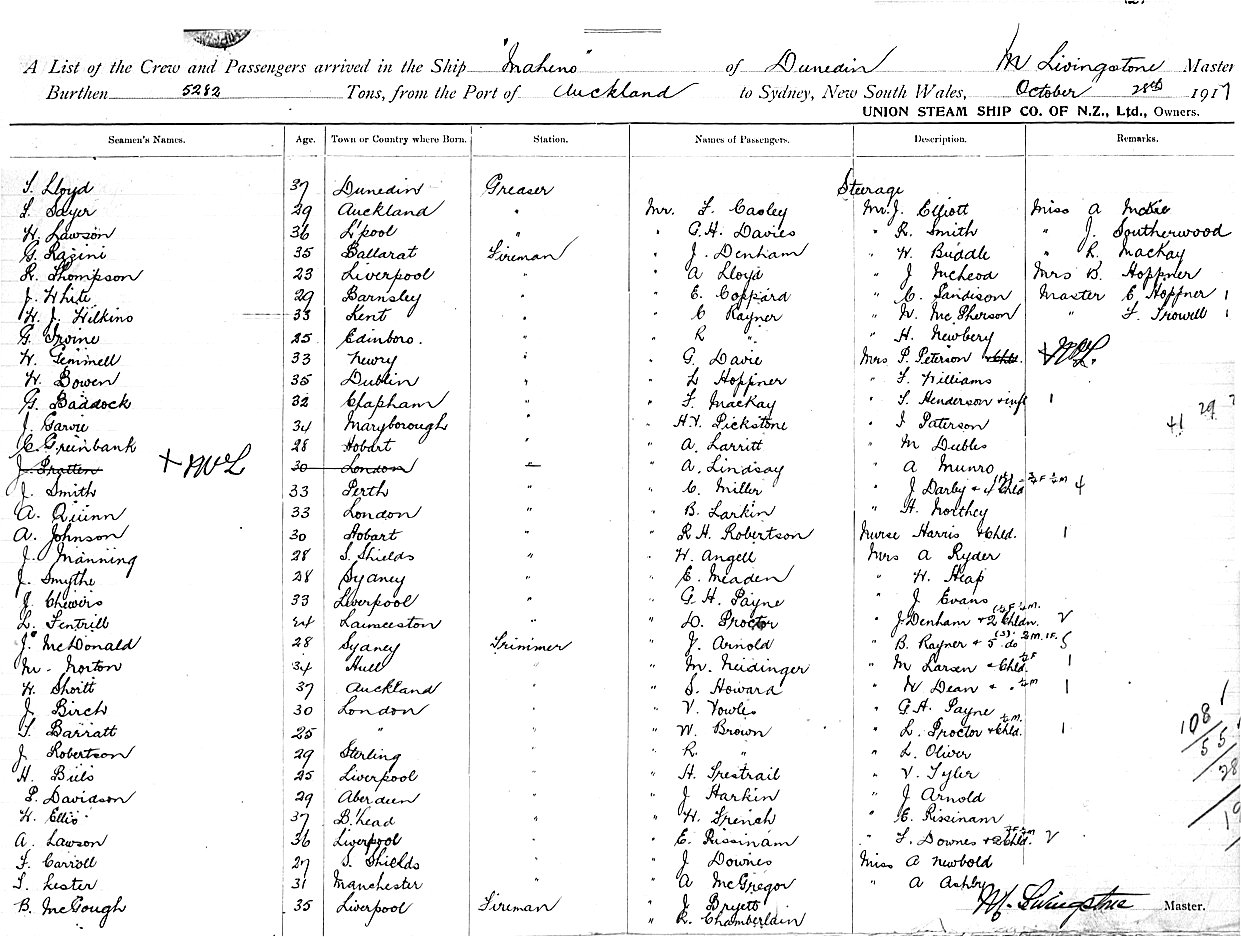 A List of the Crew and Passengers arrived in the Ship "Maheno" of Dunedin M Livingstone Master
Burthen 5282 Tons, from the Port of Auckland to Sydney, New South Wales, October 28th 1917
UNION STEAM SHIP CO. OF N.Z., Ltd., Owners.
Seamen's Names. Age. Town or Country where Born. Station. Names of Passengers. Description. Remarks.
S. Lloyd 37 Dunedin Greaser Steerage
L. Sayer 29 Auckland " Mr. F. Casley Mr. J. Elliott Miss A McKie
H. Lawson 36 L'pool " " G. H. Davies " R. Smith " J. Southerwood
G. Razini 35 Ballarat Fireman " J. Denham " W. Buddle " R. Mackay
R. Thompson 23 Liverpool " " A Lloyd " J McLeod Mrs B. Hoppner
J. White 29 Barnsley " " E. Coppard " C. Sandison Master C Hoppner 1
H. J. Wilkins 33 Kent " " C Rayner " W. McPherson " F. Trowell 1
G. Irvine 25 Edinboro. " " R " " H. Newbery
W. Gemmell 33 Newry " " G. Davie Mrs P. Peterson
W. Bowen 35 Dublin " " L Hoppner " F. Williams
G. Baddock 32 Clapham " " F. Mackay " S. Henderson + inft 1
J. Garvie 34 Maryborough " " H. V. Pickstone " I Paterson 41 29
C. Greenbank 28 Hobart " " A. Larritt " M Dubles
J. Pratten + McL 30 London " " A. Lindsay " A Munro
J. Smith 33 Perth " " C. Miller " J Darby + 4 Chld 4
A. Quinn 33 London " " B. Larkin " H. Northey
A. Johnson 30 Hobart " " R H. Robertson Nurse Harris + Chld. 1
J. Manning 28 S. Shields " " H. Angell Mrs A Ryder
J. Smythe 28 Sydney " " E. Meaden " H. Heap
J. Chewirs 33 Liverpool " " G. H. Payne " J Evans
L. Fentrill 24 Launceston " " D. Proctor " J. Denham + 2 Chldn. V
J. McDonald 28 Sydney Trimmer " J. Arnold " B. Rayner + 5 do 5
M. Norton 34 Hull " " M. Neidinger " M Larsen + Chld. 1
H. Shortt 37 Auckland " " S. Howard " W Dean + " 1
J Birch 30 London " " V. Vowles " G. H. Payne
S. Barratt 25 " " " W. Brown " L. Proctor + Chld. 1 108
J. Robertson 29 Sterling " " R. " " L. Oliver 55
H. Biels 25 Liverpool " " H. Trestrail " V. Tyler 28
P. Davidson 29 Aberdeen " " J Harkin " J Arnold
W. Ellis 37 B'head " " H. French " E. Rissinam
A. Lawson 36 Liverpool " " E. Rissinam " F. Downes + 2 Chld. V
F. Carroll 27 S. Shields " " J Downes Miss A Newbold
S. Lester 31 Manchester " " A McGregor " A Ashby
B. McGough 35 Liverpool Fireman " J M. Livingstone Master.
" R. Chamberlain